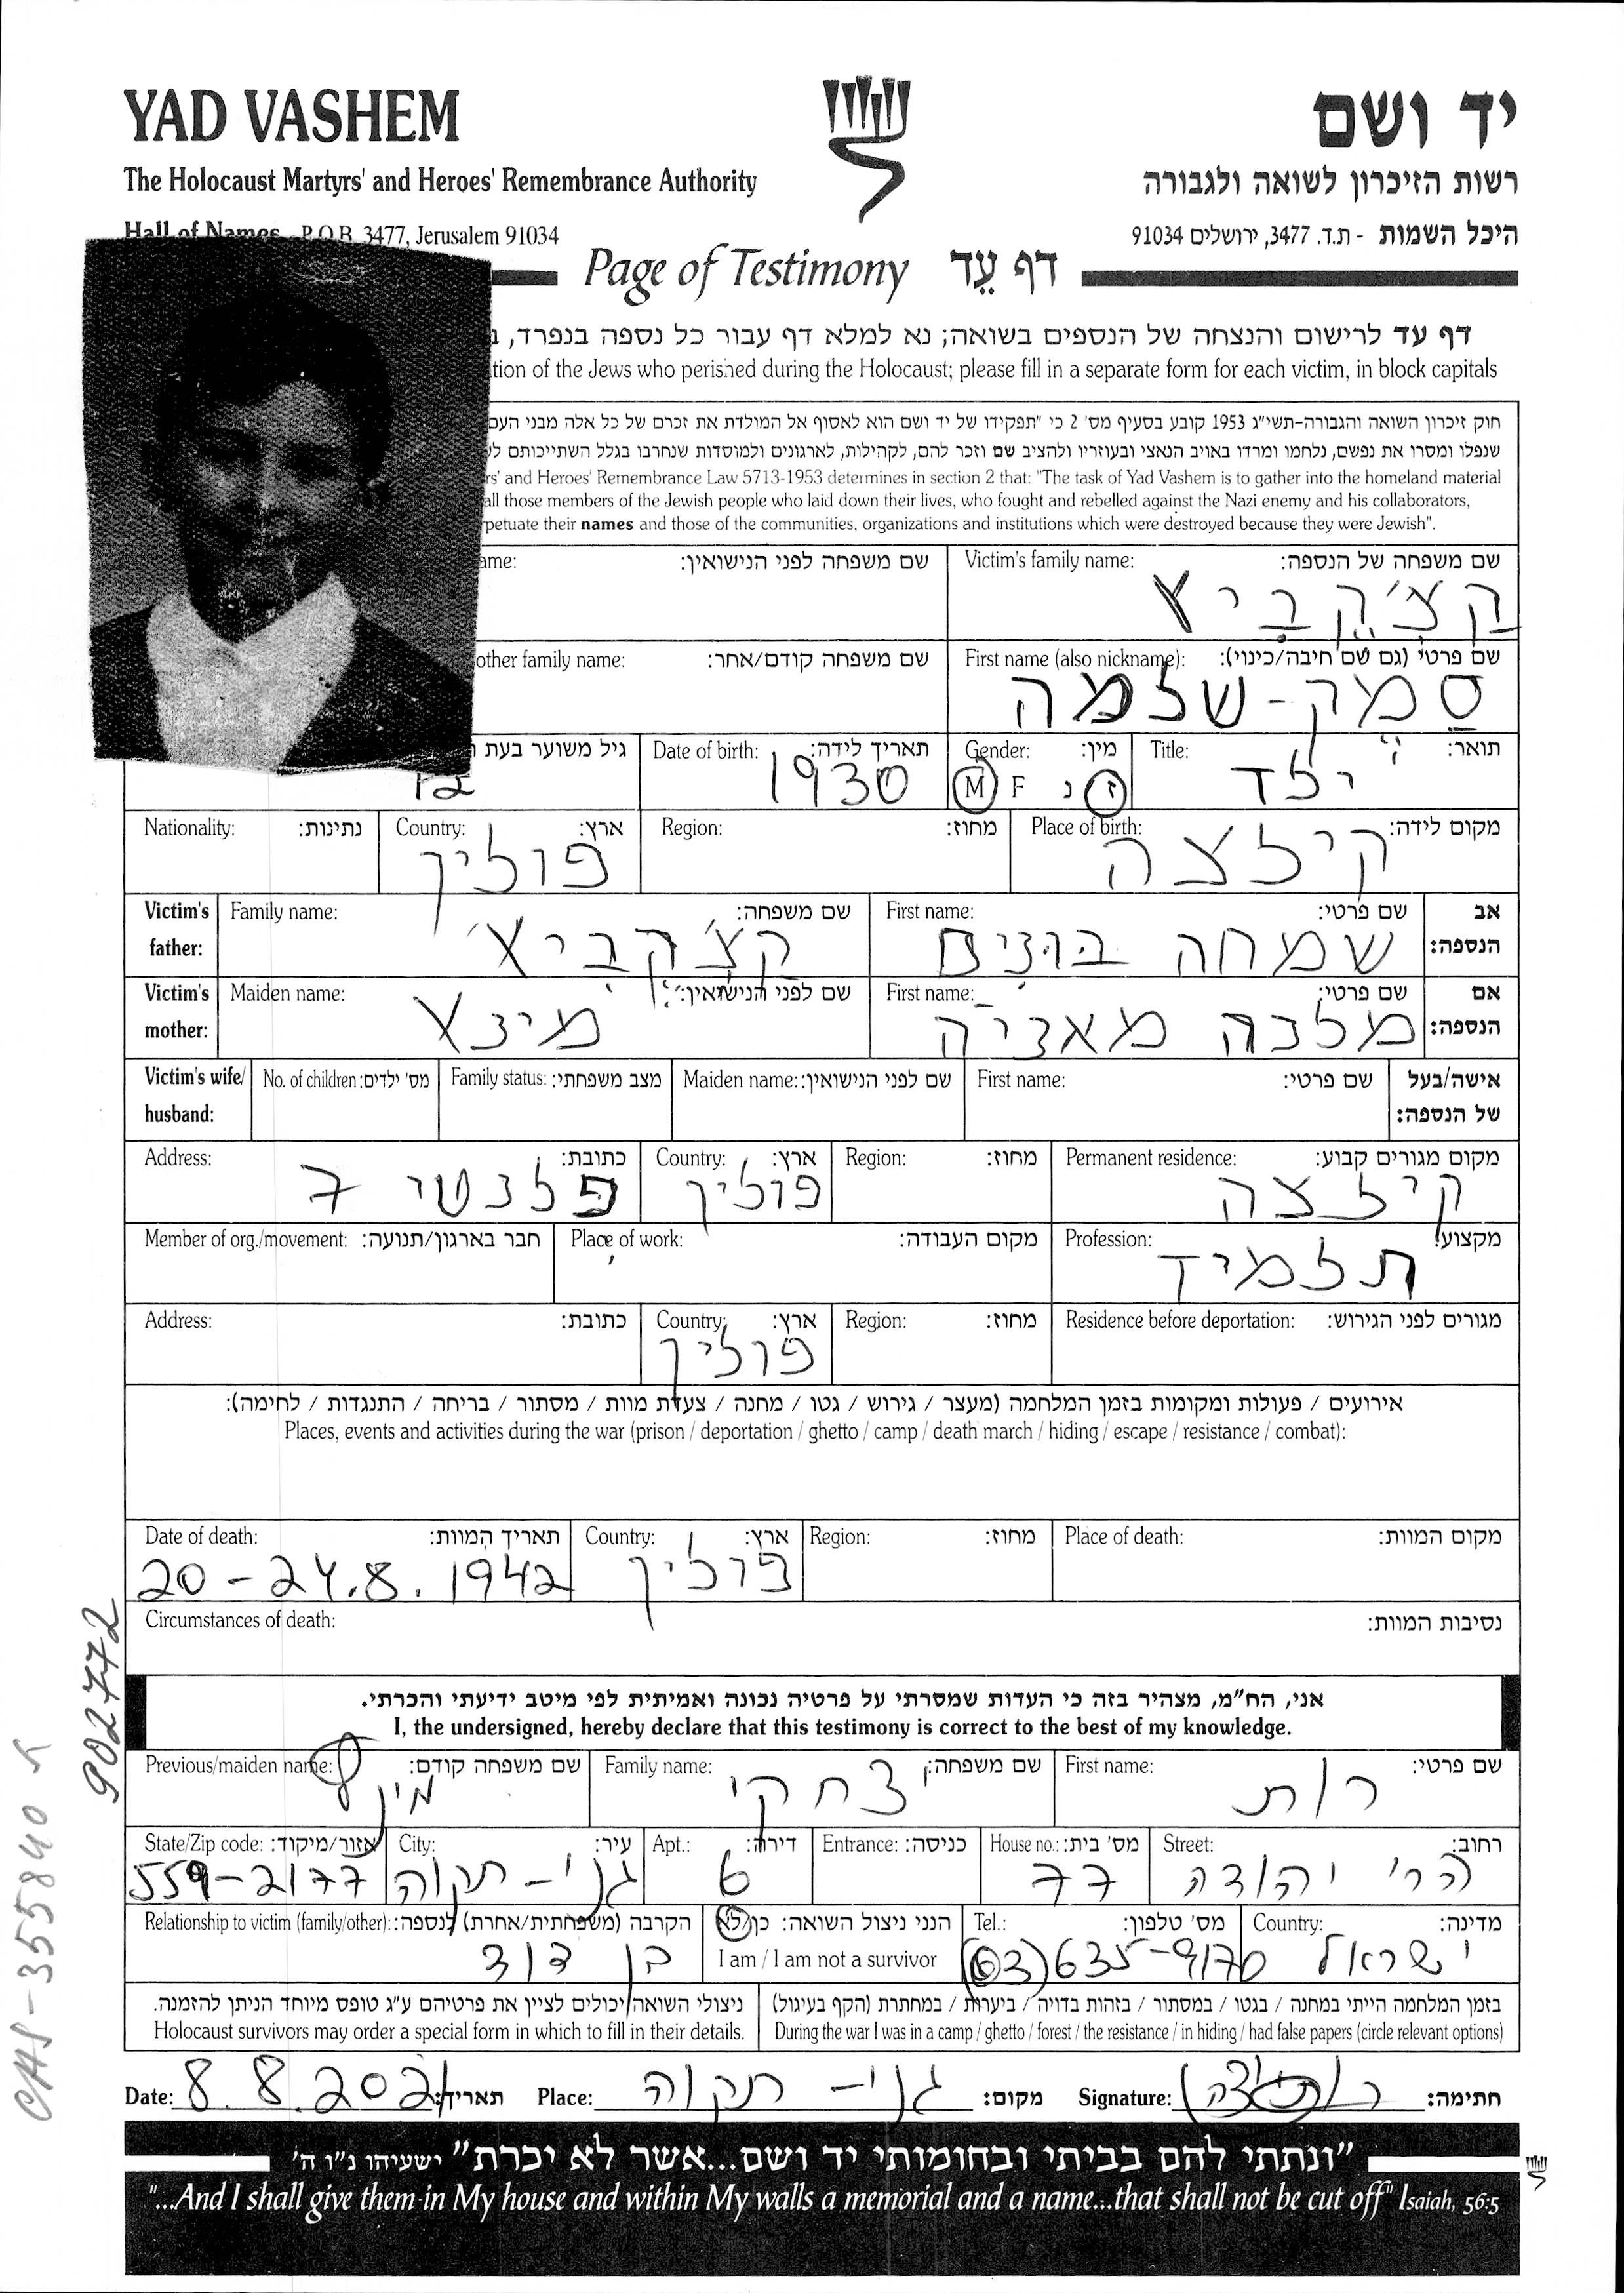 YAD VASHEM
יד ושם
The Holocaust Martyrs' and Heroes' Remembrance Authority
רשות הזיכרון לשואה ולגבורה
Hall of Names - P.O.B. 3477, Jerusalem 91034
היכל השמות - ת.ד. 3477, ירושלים 91034
Page of Testimony דף עֵד
דף עד לרישום והנצחה של הנספים בשואה; נא למלא דף עבור כל נספה בנפרד,
tion of the Jews who perished during the Holocaust; please fill in a separate form for each victim, in block capitals
חוק זיכרון השואה והגבורה-תשי״ג 1953 קובע בסעיף מס' 2 כי ״תפקידו של יד ושם הוא לאסוף אל המולדת את זכרם של כל אלה מבני העם
שנפלו ומסרו את נפשם, נלחמו ומרדו באויב הנאצי ובעוזריו ולהציב שם וזכר להם, לקהילות, לארגונים ולמוסדות שנחרבו בגלל השתייכותם
rs' and Heroes' Remembrance Law 5713-1953 determines in section 2 that: "The task of Yad Vashem is to gather into the homeland material
all those members of the Jewish people who laid down their lives, who fought and rebelled against the Nazi enemy and his collaborators,
petuate their names and those of the communities, organizations and institutions which were destroyed because they were Jewish".
שם משפחה של הנספה: Victim's family name: שם משפחה לפני הנישואין: ame:
קצ'קביץ
שם פרטי (גם שם חיבה/כינוי): First name (also nickname): שם משפחה קודם/אחר: other family name:
סמק-שלמה
תואר: Title: מין: Gender: תאריך לידה: Date of birth: גיל משוער בעת
ילד ז נ M F 1930 12
מקום לידה: Place of birth: מחוז: Region: ארץ: Country: נתינות: Nationality:
קילצה פולין
אב הנספה: שם פרטי: First name: שם משפחה: Family name: Victim's father:
שמחה בונים קצ'קביץ'
אם הנספה: שם פרטי: First name: שם לפני הנישואין: Maiden name: Victim's mother:
מלכה מאניה מינץ
אישה/בעל של הנספה: שם פרטי: First name: שם לפני הנישואין: Maiden name: מצב משפחתי: Family status: מס' ילדים: No. of children: Victim's wife/ husband:
מקום מגורים קבוע: Permanent residence: מחוז: Region: ארץ: Country: כתובת: Address:
קילצה פולין 7
מקצוע: Profession: מקום העבודה: Place of work: חבר בארגון/תנועה: Member of org./movement:
תלמיד
מגורים לפני הגירוש: Residence before deportation: מחוז: Region: ארץ: Country: כתובת: Address:
פולין
אירועים / פעולות ומקומות בזמן המלחמה (מעצר / גירוש / גטו / מחנה / צעדת מוות / מסתור / בריחה / התנגדות / לחימה):
Places, events and activities during the war (prison / deportation / ghetto / camp / death march / hiding / escape / resistance / combat):
מקום המוות: Place of death: מחוז: Region: ארץ: Country: תאריך המוות: Date of death:
פולין 20-24.8.1942
נסיבות המוות: Circumstances of death:
אני, הח״מ, מצהיר בזה כי העדות שמסרתי על פרטיה נכונה ואמיתית לפי מיטב ידיעתי והכרתי.
I, the undersigned, hereby declare that this testimony is correct to the best of my knowledge.
שם פרטי: First name: שם משפחה: Family name: שם משפחה קודם: Previous/maiden name:
רות יצחקי מינץ
רחוב: Street: מס' בית: House no.: כניסה: Entrance: דירה: Apt.: עיר: City: אזור/מיקוד: State/Zip code:
הרי יהודה 77 6 גני-תקוה 559-2177
מדינה: Country: מס' טלפון: Tel.: הנני ניצול השואה: כן/לא I am / I am not a survivor הקרבה (משפחתית/אחרת) לנספה: Relationship to victim (family/other):
ישראל (03)635-9170 בן דוד
בזמן המלחמה הייתי במחנה / בגטו / במסתור / בזהות בדויה / ביערות / במחתרת (הקף בעיגול)
During the war I was in a camp / ghetto / forest / the resistance / in hiding / had false papers (circle relevant options)
ניצולי השואה יכולים לציין את פרטיהם ע״ג טופס מיוחד הניתן להזמנה.
Holocaust survivors may order a special form in which to fill in their details.
חתימה: Signature: מקום: גני-תקוה Place: תאריך: 8.8.2021 Date:
״ונתתי להם בביתי ובחומותי יד ושם...אשר לא יכרת״ ישעיהו נ״ו ה'
"...And I shall give them in My house and within My walls a memorial and a name...that shall not be cut off" Isaiah, 56:5
902772